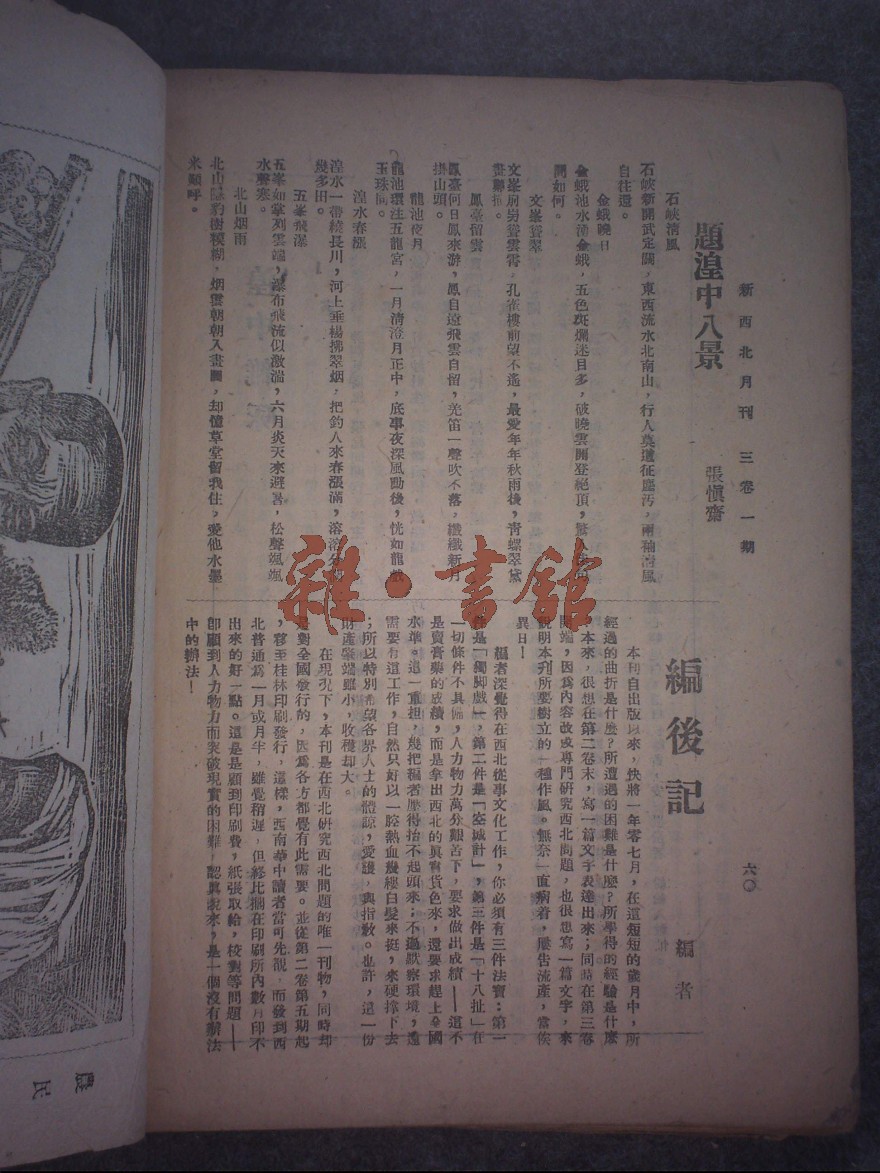 新西北月刊 三卷一期
六〇
題湟中八景
張愼齋
石峽淸風
石峽新開武定關,東西流水北南山,行人莫遣征塵汚,兩袖淸風
自往還。
金蛾曉日
金蛾池水浴金蛾,五色斑斕迷目多,破曉雲開登絕頂,
間如何。
文峯聳翠
文峯聳雲霄,孔雀樓前望不遙,最愛年年秋雨後,靑螺翠黛
鳳臺留雲
鳳臺何日鳳來游,鳳自遠飛雲自留,羌笛一聲吹不落,纖纖新月
掛山頭。
龍池夜月
龍池環注五龍宮,一月淸澄月正中,底事夜深風動後,恍如龍戲
玉珠
湟水春漲
湟水一帶繞長川,河上垂楊拂翠烟,把釣人來春漲滿,溶溶
幾多田。
五峯飛瀑
五峯如掌列雲端,瀑布飛流似激湍,六月炎天來避暑,松聲颯颯
水聲寒。
北山烟雨
北山隱豹樹模糊,烟雲朝朝入畫圖,却憶草堂留我住,愛他水墨
米顚呼。
編後記
編者
本刊自出版以來,快將一年零七月,在這短短的歲月中,所
經過的曲折是什麼?所遭遇的困難是什麼?所學得的經驗是什麼
,本來,很想在第二卷末,寫一篇文字表達出來;同時在第三卷
開端,因爲內容改成專門硏究西北問題,也很想寫一篇文字,來
說明本刊所要樹立的一種作風。無奈一直病着,屢吿流產,當俟
異日!
編者深覺得在西北從事文化工作,你必須有三件法寶:第一
件是「獨脚戲」,第二件是「空城計」,第三件是「十八扯」在
一切條件不具備,人力物力萬分艱苦下,要求做出成績——這不
是賣膏藥的成績,而是拿出西北的眞實貨色來,還要求趕上全國
水準。這一重担,幾把編者壓得抬不起頭來;不過默察環境,還
需要有這工作,自然只好以一腔熱血幾縷白髮來挺,來硬撐下去
;所以特別希望各界人士的體諒,愛護,與指敎。也許,這一份
財產肇端雖小,收穫却大。
在現况下,本刊是在西北硏究西北問題的唯一刊物,同時却
是對全國發行的,因爲各方都覺有此需要。並從第二卷第五期起
,移至桂林印刷發行,這樣,西南華中讀者當可先覩,而發到西
北普通爲一月或月半,雖覺稍遲,但終比擱在印刷所內數月印不
出來的好一點。這是顧到印刷費,紙張取給,校對等問題——
卽顧到人力物力而突破現實的困難,認眞說來,是一個沒有辦法
中的辦法!
農民
雜·書館